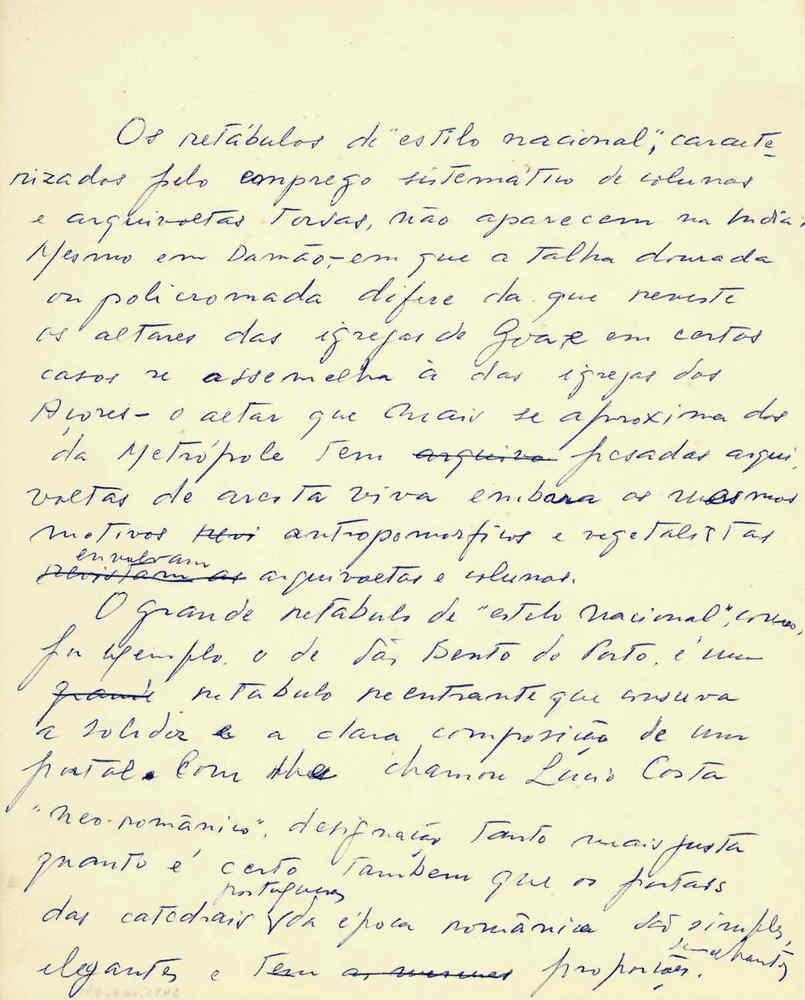 Os retábulos de "estilo nacional", caracte-
rizados pelo emprego sistemático de colunas
e arquivoltas torsas, não aparecem na India.
Mesmo em Damão, - em que a talha dourada
ou policromada difere da que reveste
os altares das igrejas de Goa, e em certos
casos se assemelha à das igrejas dos
Açores - o altar que mais se aproxima dos
da Metrópole tem arquivo pesadas arqui-
voltas de aresta viva embora os mesmos
motivos revi antropomorficos e vegetalistas
envolvam
revistam as arquivoltas e colunas.
O grande retábulo de "estilo nacional", como,
por exemplo, o de São Bento do Porto, é um
grande retabulo reentrante que conserva
a solidez e a clara composição de um
portal. Com chamou Lucio Costa
"neo-românico", designação tanto mais justa
quanto é certo tambem que os portais
portugueses
das catedrais da época românica são simples,
semelhantes
elegantes e tem as mesmas proporções.